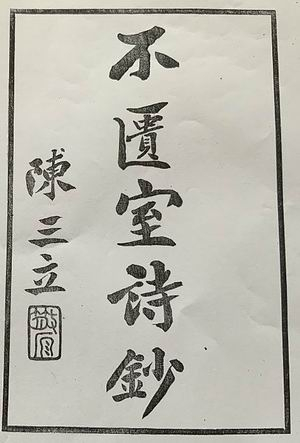 不匱室詩鈔
陳三立